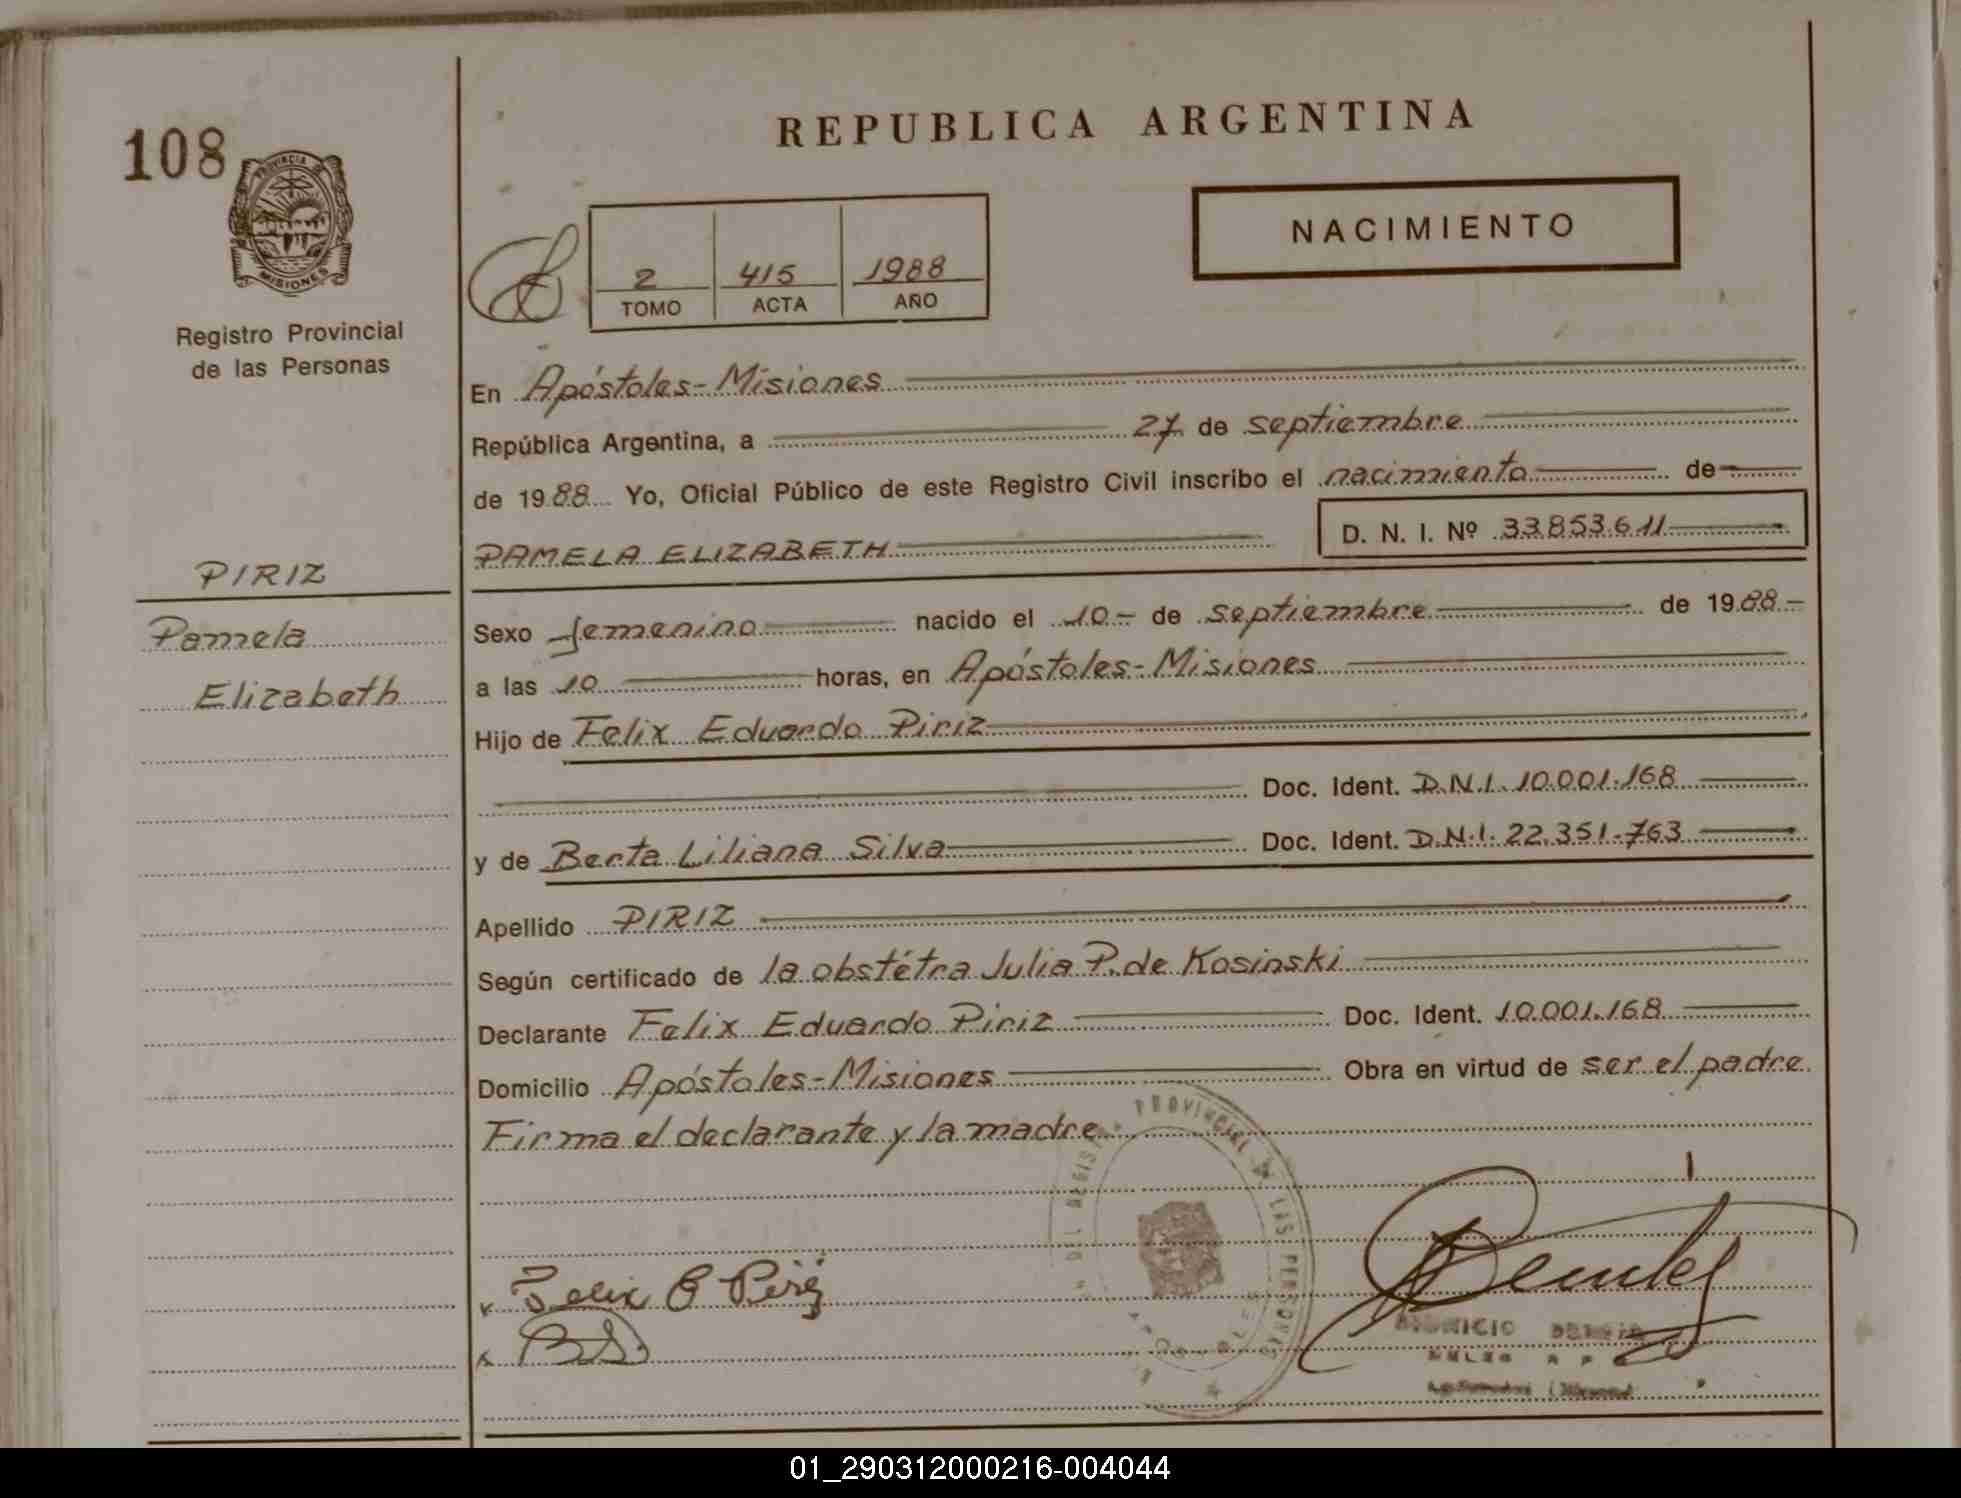 REPUBLICA ARGENTINA
108
PROVINCIA
MISIONES
NACIMIENTO
2 415 1988
TOMO ACTA AÑO
Registro Provincial
de las Personas
En Apóstoles-Misiones
República Argentina, a 27 de septiembre
de 1988 Yo, Oficial Público de este Registro Civil inscribo el nacimiento de
PAMELA ELIZABETH D. N. I. Nº 33.853.611
PIRIZ
Pamela
Elizabeth
Sexo femenino nacido el 10- de septiembre de 1988-
a las 10 horas, en Apóstoles-Misiones
Hijo de Felix Eduardo Piriz
Doc. Ident. D.N.I. 10.001.168
y de Berta Liliana Silva Doc. Ident. D.N.I. 22.351.763
Apellido PIRIZ
Según certificado de la obstétra Julia P. de Kosinski
Declarante Felix Eduardo Piriz Doc. Ident. 10.001.168
Domicilio Apóstoles-Misiones Obra en virtud de ser el padre
Firma el declarante y la madre
PROVINCIAL LAS PERSONAS
x Felix E Piriz
x BS
01_290312000216-004044